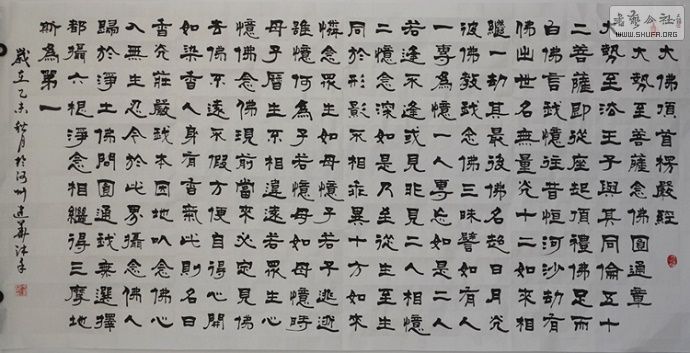 大佛頂首楞嚴經
大勢至菩薩念佛圓通章
大勢至法王子與其同倫五十
二菩薩即從座起頂禮佛足而
白佛言我憶往昔恒河沙劫有
佛出世名無量光十二如來相
繼一劫其最後佛名超日月光
彼佛教我念佛三昧譬如有人
一專為憶一人專忘如是二人
若逢不逢或見非見二人相憶
二憶念深如是乃至從生至生
同於形影不相乖異十方如來
憐念眾生如母憶子若子逃逝
雖憶何為子若憶母如母憶時
母子歷生不相違遠若眾生心
憶佛念佛現前當來必定見佛
去佛不遠不假方便自得心開
如染香人身有香氣此則名曰
香光莊嚴我本因地以念佛心
入無生忍今於此界攝念佛人
歸於淨土佛問圓通我無選擇
都攝六根淨念相繼得三摩地
斯為第一
歲在乙未秋月於河州建華沐手
书艺公社
WWW.SHUFA.ORG